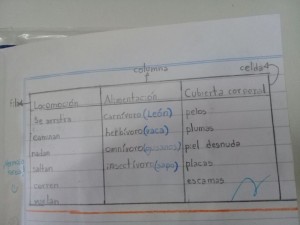 columna
celda
fila
Locomoción Alimentación Cubierta corporal
Se arrastra carnívoro (León) pelos
caminan herbívoro (vaca) plumas
nadan omnívoro piel desnuda
saltan insectívoro (sapo) placas
corren escamas
reptan